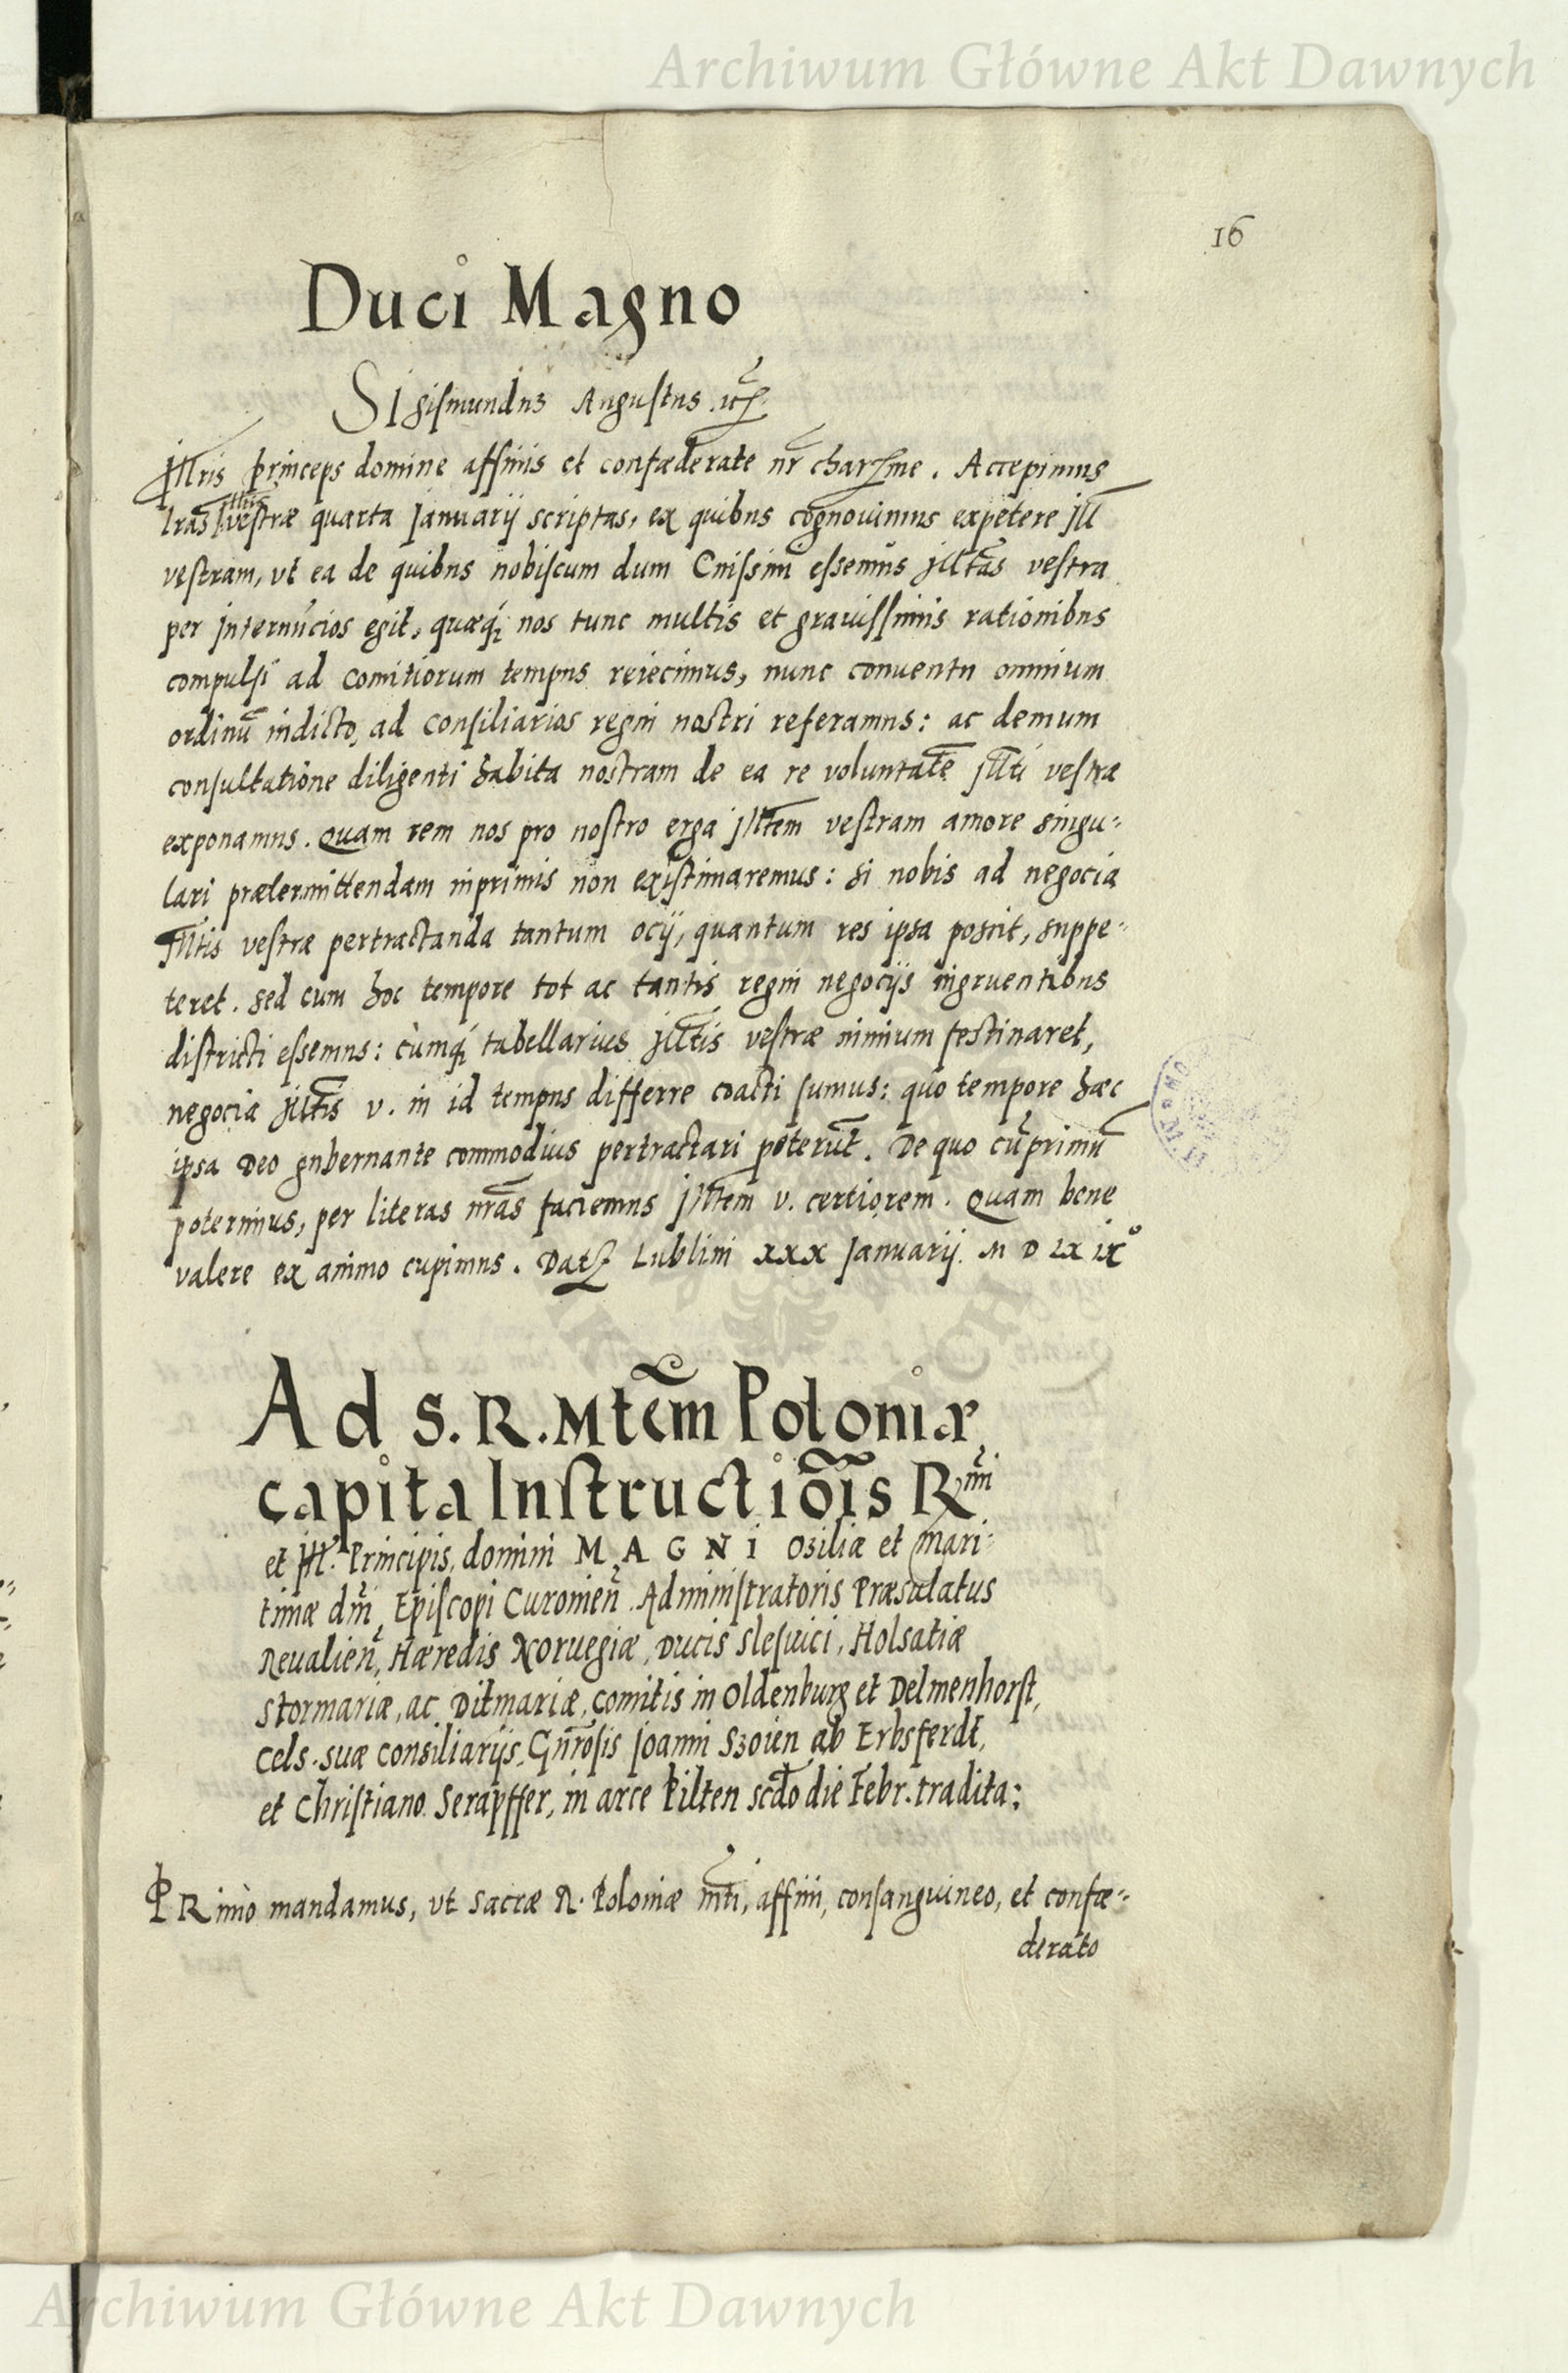 Archiwum Główne Akt Dawnych
16
Duci Magno
Sigismundus Augustus etc.
Illris princeps domine affinis et confœderate nr charissme. Accepimus
lras Illtis vestræ quarta Januarij scriptas, ex quibus cognovimus expetere Ill
vestram, vt ea de quibus nobiscum dum Cnissini essemus illtas vestra
per internúcios egit, quæq́; nos tunc multis et grauissimis rationibus
compulsi ad comitiorum tempus reiecimus, nunc conuentu omnium
ordinū indicto, ad consiliarios regni nostri referamus: ac demum
consultatione diligenti habita nostram de ea re voluntatē illti vestræ
exponamus. Quam rem nos pro nostro erga illtem vestram amore singu-
lari prætermittendam inprimis non existimaremus: si nobis ad negocia
Illtis vestræ pertractanda tantum ocij, quantum res ipsa poscit, suppe-
teret. sed cum hoc tempore tot ac tantis regni negocijs ingruentibus
districti essemus: cùmq́; tabellarius illtis vestræ nimium festinaret,
negocia illtis v. in id tempus differre coacti sumus: quo tempore hæc
ipsa Deo gubernante commodius pertractari poterūt. De quo cūprimū
poterimus, per literas nrās faciemus illtem v. certiorem. Quam bene
valere ex animo cupimus. Dat Lublini xxx Januarij. M D LX IX°
Ad S. R. Mtēm Poloniæ
capita Instructiōis Rmi
et Ill. Principis, domini MAGNI Oziliæ et Mari-
timæ dn̄i, Episcopi Curonien̄. Administratoris Præsulatus
Reualien̄, Hæredis Noruegiæ, Ducis Slesuici, Holsatiæ
Stormariæ, ac Ditmariæ, comitis in Oldenburg et Delmenhorst,
Cels. suæ consiliarijs, Gn̄rosis Joanni Szoien ab Erbsferdt,
et Christiano Serapffer, in arce Pilten scdo die Febr. tradita:
PRimò mandamus, vt Sacræ R. Poloniæ mti, affini, consanguineo, et confæ-
derato
Archiwum Główne Akt Dawnych